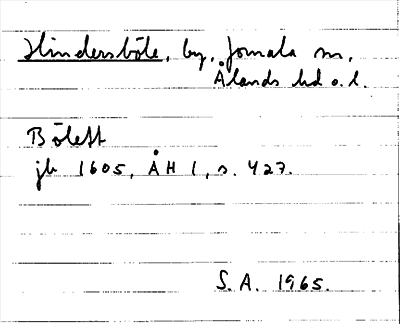 Hindersböle, by, Jomala sn,
Ålands hd o. l.
Bölest
jb 1605, ÅH 1, s. 427.
S. A. 1965.